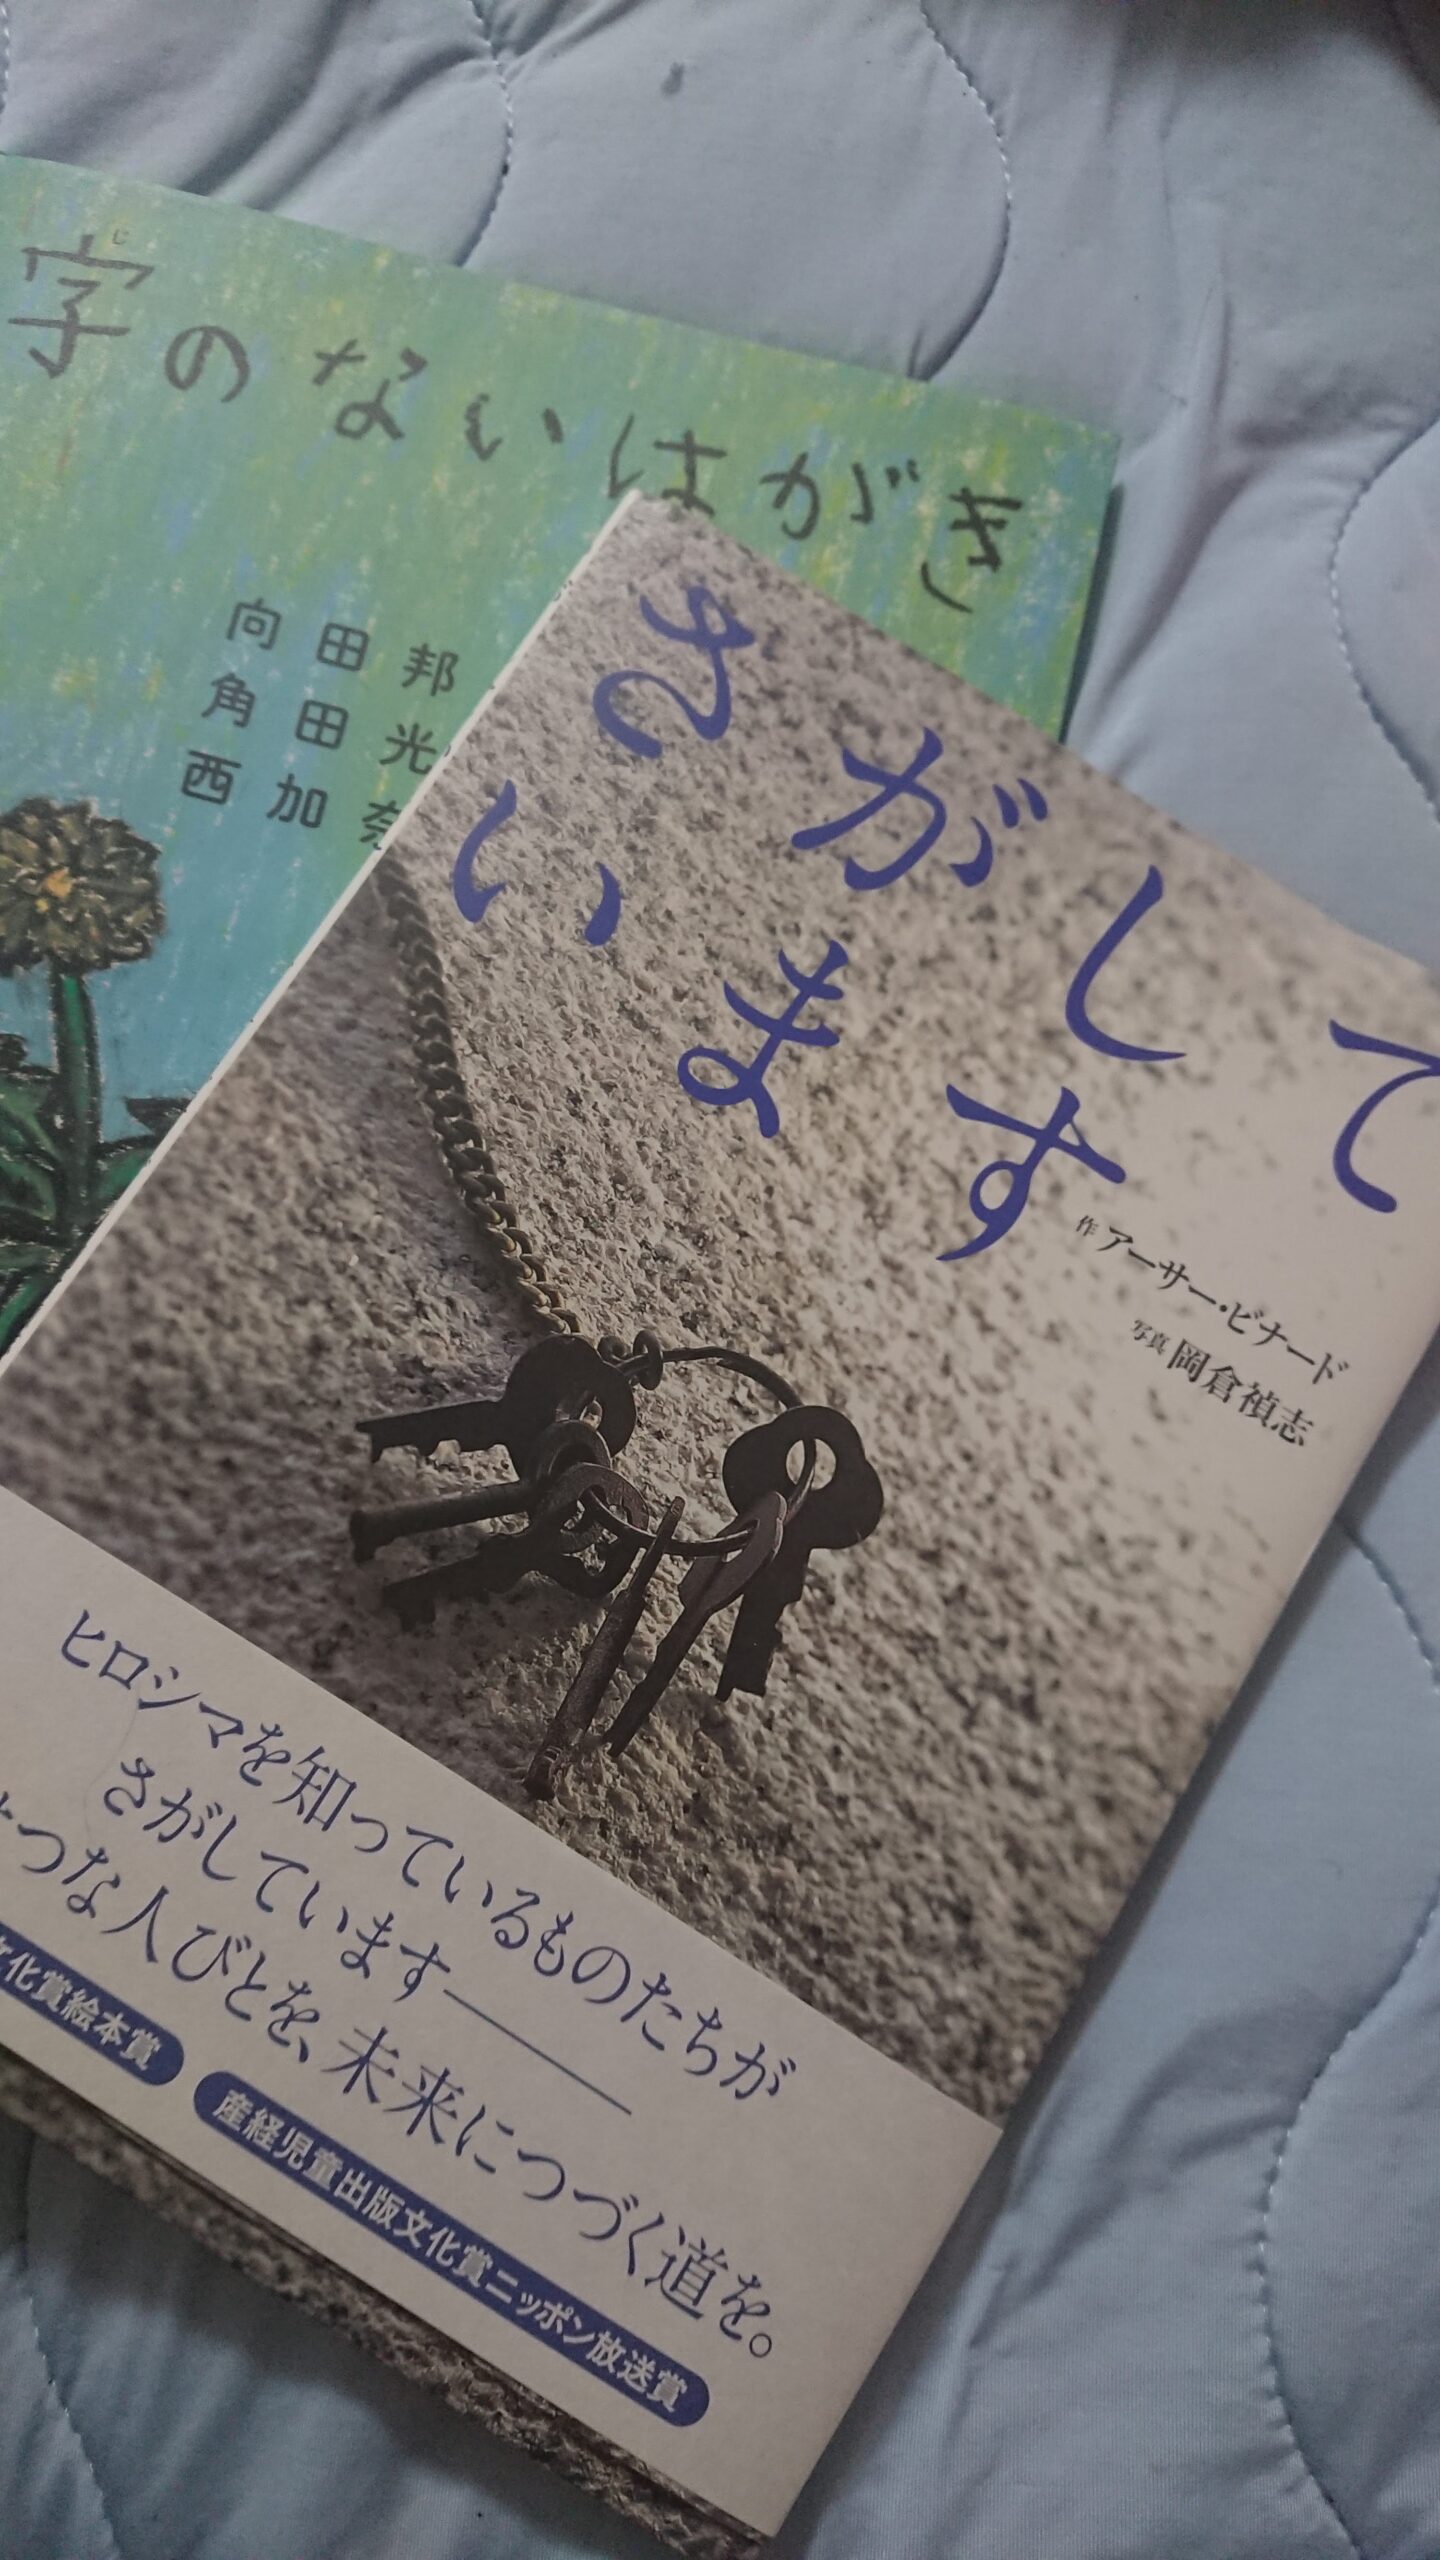 字のないはがき
じ
向田邦
角田光
西加奈
さがして
います
作 アーサー・ビナード
写真 岡倉禎志
ヒロシマを知っているものたちが
さがしています——
つな人びとを、未来につづく道を。
文化賞絵本賞
産経児童出版文化賞ニッポン放送賞